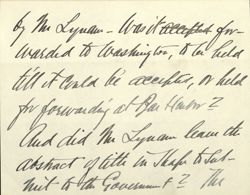 by Mr Lynam - Was it accepted for-
warded to Washington, to be held
till it could be accepted, or held
for forwarding at Bar Harbor?
And did Mr Lynam leave the
abstract of title in shape to sub-
mit to the Government? The